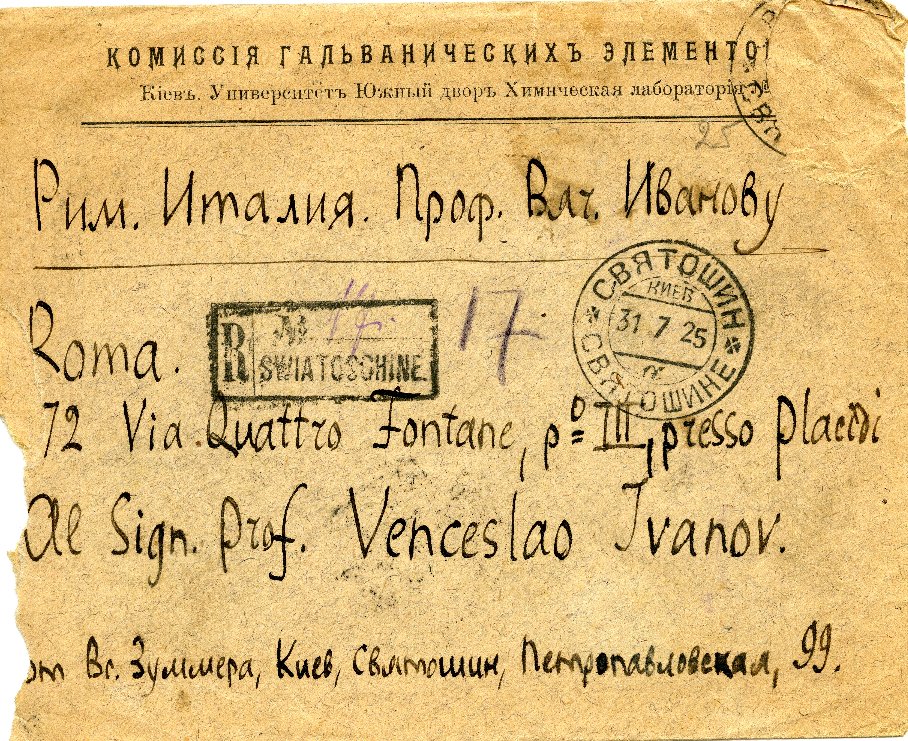 КОМИССІЯ ГАЛЬВАНИЧЕСКИХЪ ЭЛЕМЕНТО
Кіевъ. Университетъ Южный дворъ Химическая лабораторія
25
Рим. Италия. Проф. Вяч. Иванову
СВЯТОШИН
КИЕВ
31 7 25
а
СВЯТОШИНЕ
Roma.
R № 17
SWIATOSCHINE.
17
72 Via Quattro Fontane, pº III, presso Placidi
Al Sign. Prof. Venceslao Ivanov.
от Вс. Зуммера, Киев, Святошин, Петропавловская, 99.